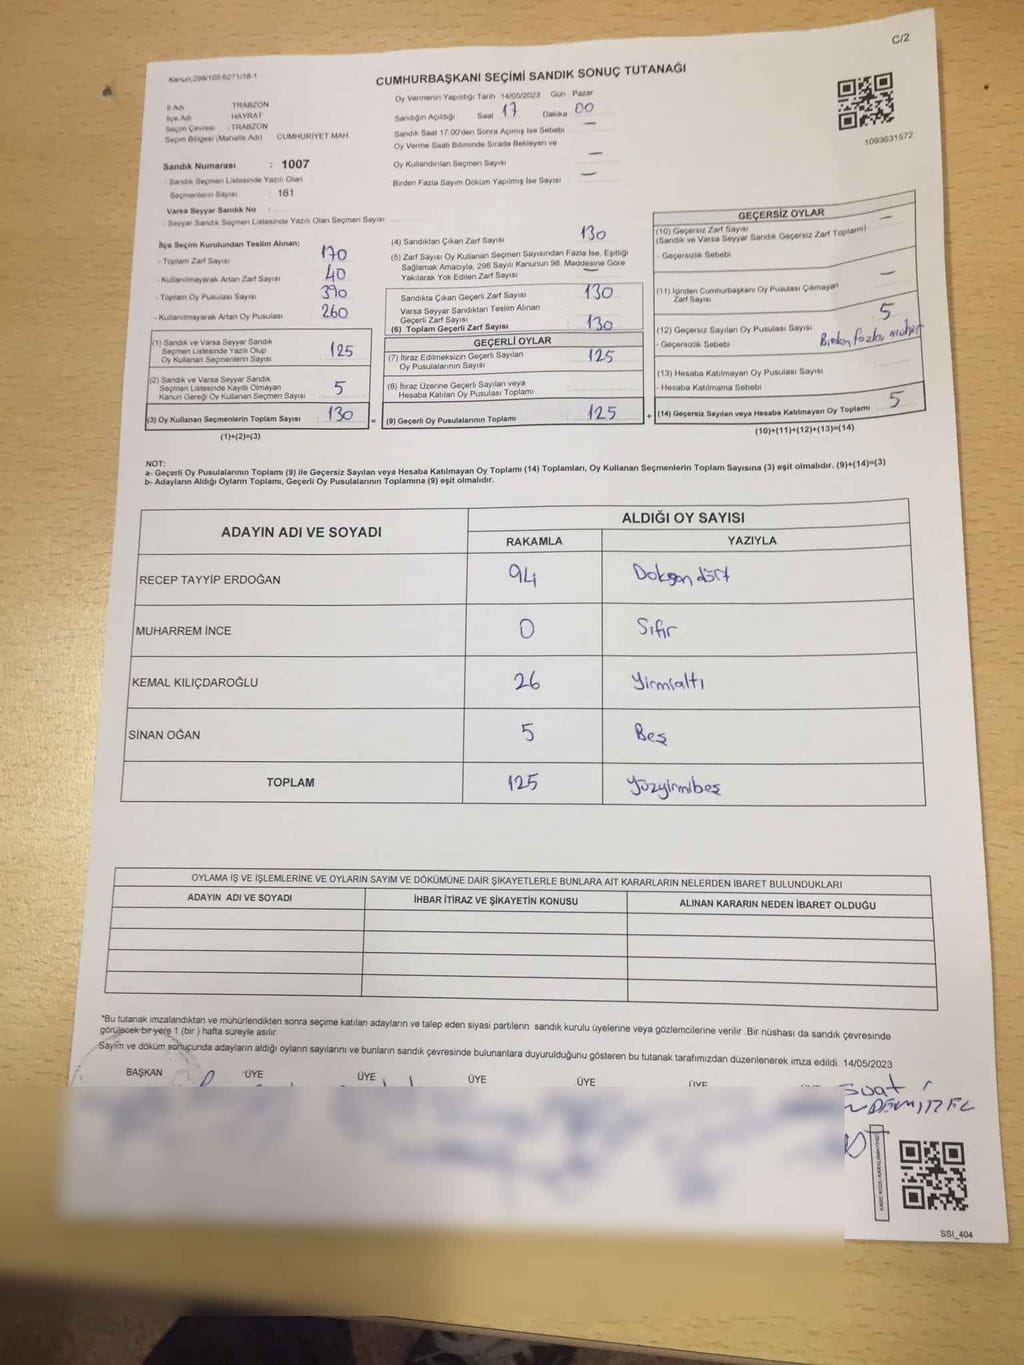 C/2
Kanun:298/105,6271/18-1
CUMHURBAŞKANI SEÇİMİ SANDIK SONUÇ TUTANAĞI
İl Adı TRABZON
İlçe Adı HAYRAT
Seçim Çevresi : TRABZON
Seçim Bölgesi (Mahalle Adı) CUMHURİYET MAH
Sandık Numarası : 1007
- Sandık Seçmen Listesinde Yazılı Olan
Seçmenlerin Sayısı : 161
Varsa Seyyar Sandık No :
- Seyyar Sandık Seçmen Listesinde Yazılı Olan Seçmen Sayısı
Oy Vermenin Yapıldığı Tarih 14/05/2023 Gün : Pazar
Sandığın Açıldığı Saat 17 Dakika 00
Sandık Saat 17:00'den Sonra Açılmış İse Sebebi —
Oy Verme Saati Bitiminde Sırada Bekleyen ve
Oy Kullandırılan Seçmen Sayısı —
Birden Fazla Sayım Döküm Yapılmış İse Sayısı —
1093631572
İlçe Seçim Kurulundan Teslim Alınan;
- Toplam Zarf Sayısı 170
- Kullanılmayarak Artan Zarf Sayısı 40
- Toplam Oy Pusulası Sayısı 390
- Kullanılmayarak Artan Oy Pusulası 260
(1) Sandık ve Varsa Seyyar Sandık
Seçmen Listesinde Yazılı Olup
Oy Kullanan Seçmenlerin Sayısı 125
(2) Sandık ve Varsa Seyyar Sandık
Seçmen Listesinde Kayıtlı Olmayan
Kanun Gereği Oy Kullanan Seçmen Sayısı 5
(3) Oy Kullanan Seçmenlerin Toplam Sayısı 130 =
(1)+(2)=(3)
(4) Sandıktan Çıkan Zarf Sayısı 130
(5) Zarf Sayısı Oy Kullanan Seçmen Sayısından Fazla İse, Eşitliği
Sağlamak Amacıyla, 298 Sayılı Kanunun 98. Maddesine Göre
Yakılarak Yok Edilen Zarf Sayısı —
Sandıkta Çıkan Geçerli Zarf Sayısı 130
Varsa Seyyar Sandıktan Teslim Alınan
Geçerli Zarf Sayısı
(6) Toplam Geçerli Zarf Sayısı 130
GEÇERLİ OYLAR
(7) İtiraz Edilmeksizin Geçerli Sayılan
Oy Pusulalarının Sayısı 125
(8) İtiraz Üzerine Geçerli Sayılan veya
Hesaba Katılan Oy Pusulası Toplamı
(9) Geçerli Oy Pusulalarının Toplamı 125 +
GEÇERSİZ OYLAR
(10) Geçersiz Zarf Sayısı —
(Sandık ve Varsa Seyyar Sandık Geçersiz Zarf Toplamı)
- Geçersizlik Sebebi
(11) İçinden Cumhurbaşkanı Oy Pusulası Çıkmayan —
Zarf Sayısı
(12) Geçersiz Sayılan Oy Pusulası Sayısı 5
- Geçersizlik Sebebi Birden fazla mühür
(13) Hesaba Katılmayan Oy Pusulası Sayısı
- Hesaba Katılmama Sebebi
(14) Geçersiz Sayılan veya Hesaba Katılmayan Oy Toplamı 5
(10)+(11)+(12)+(13)=(14)
NOT:
a- Geçerli Oy Pusulalarının Toplamı (9) ile Geçersiz Sayılan veya Hesaba Katılmayan Oy Toplamı (14) Toplamları, Oy Kullanan Seçmenlerin Toplam Sayısına (3) eşit olmalıdır. (9)+(14)=(3)
b- Adayların Aldığı Oyların Toplamı, Geçerli Oy Pusulalarının Toplamına (9) eşit olmalıdır.
ADAYIN ADI VE SOYADI ALDIĞI OY SAYISI
RAKAMLA YAZIYLA
RECEP TAYYİP ERDOĞAN 94 Doksan dört
MUHARREM İNCE 0 Sıfır
KEMAL KILIÇDAROĞLU 26 Yirmialtı
SİNAN OĞAN 5 Beş
TOPLAM 125 Yüzyirmibeş
OYLAMA İŞ VE İŞLEMLERİNE VE OYLARIN SAYIM VE DÖKÜMÜNE DAİR ŞİKAYETLERLE BUNLARA AİT KARARLARIN NELERDEN İBARET BULUNDUKLARI
ADAYIN ADI VE SOYADI İHBAR İTİRAZ VE ŞİKAYETİN KONUSU ALINAN KARARIN NEDEN İBARET OLDUĞU
*Bu tutanak imzalandıktan ve mühürlendikten sonra seçime katılan adayların ve talep eden siyasi partilerin sandık kurulu üyelerine veya gözlemcilerine verilir .Bir nüshası da sandık çevresinde
görülecek bir yere 1 (bir ) hafta süreyle asılır.
Sayım ve döküm sonucunda adayların aldığı oyların sayılarını ve bunların sandık çevresinde bulunanlara duyurulduğunu gösteren bu tutanak tarafımızdan düzenlenerek imza edildi. 14/05/2023
BAŞKAN ÜYE ÜYE ÜYE ÜYE ÜYE
Suat
DEMİREL
SSI_404